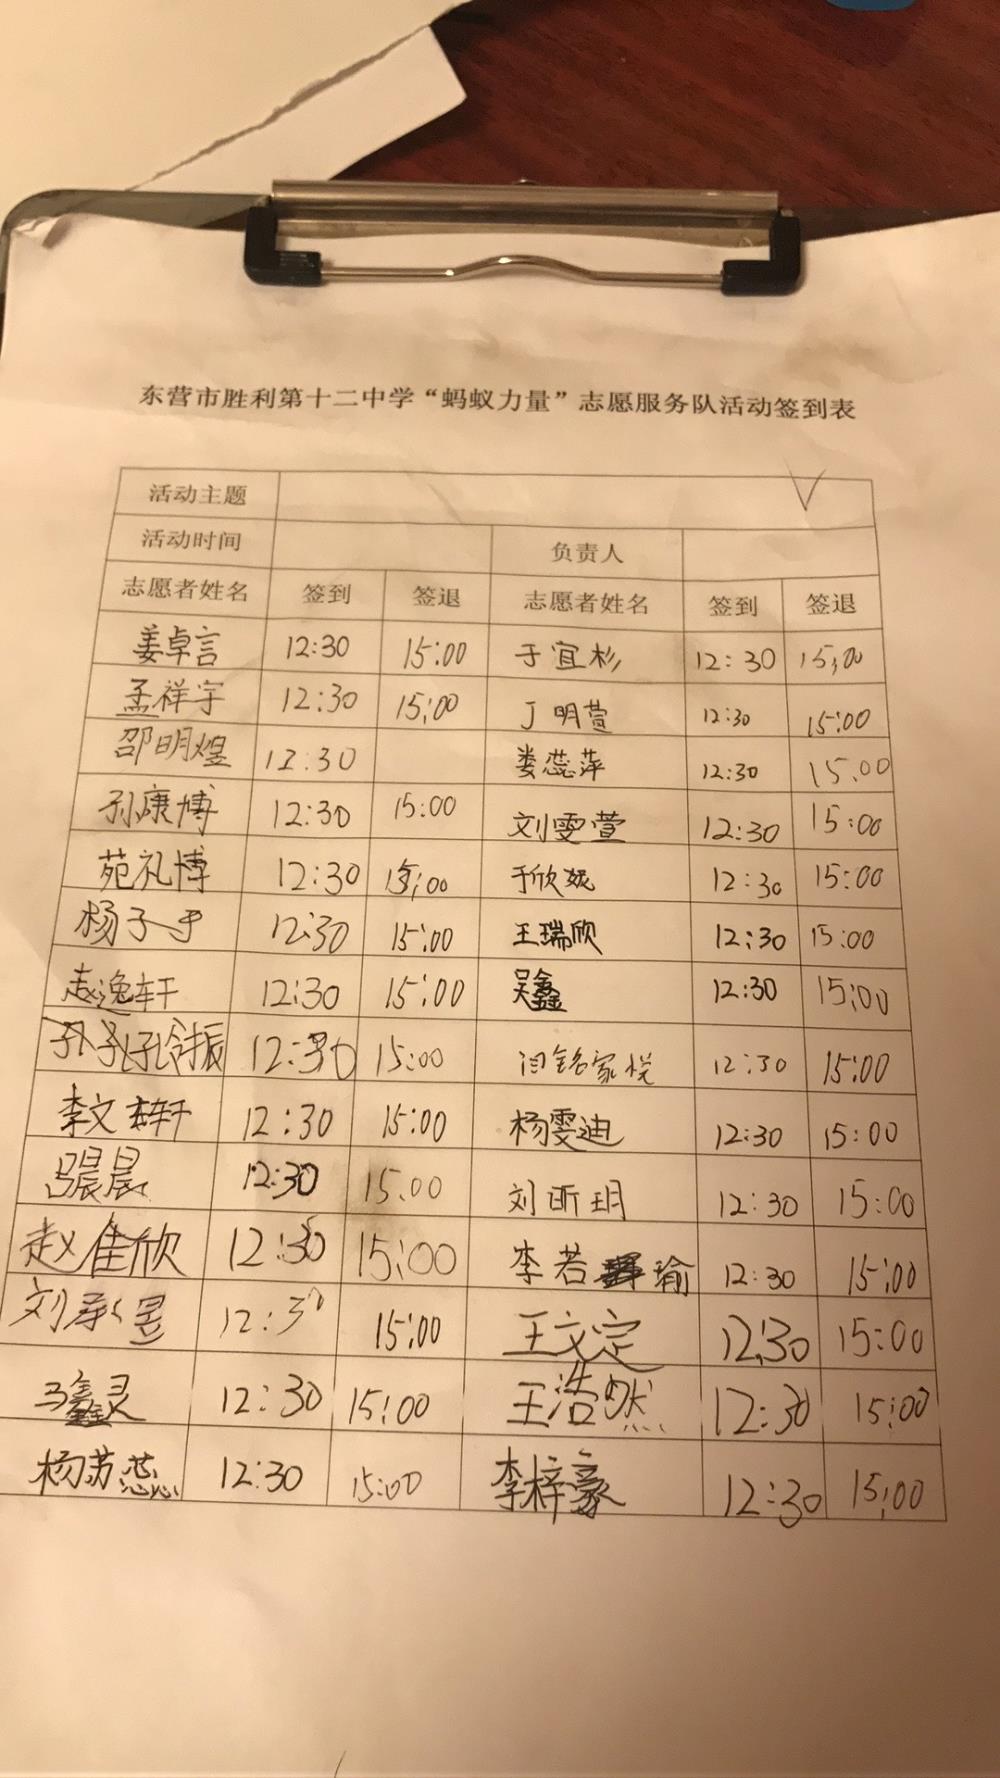 东营市胜利第十二中学“蚂蚁力量”志愿服务队活动签到表
活动主题
活动时间 负责人
志愿者姓名 签到 签退 志愿者姓名 签到 签退
姜卓言 12:30 15:00 于宜杉 12:30 15:00
孟祥宇 12:30 15:00 丁明萱 12:30 15:00
邵明煜 12:30 娄蕊萍 12:30 15:00
孙康博 12:30 15:00 刘雯萱 12:30 15:00
苑礼博 12:30 15:00 于欣妮 12:30 15:00
杨子予 12:30 15:00 王瑞欣 12:30 15:00
赵逸轩 12:30 15:00 吴鑫 12:30 15:00
12:30 15:00 闫铭家悦 12:30 15:00
李文轩 12:30 15:00 杨雯迪 12:30 15:00
12:30 15:00 刘昕玥 12:30 15:00
赵佳欣 12:30 15:00 李若瑜 12:30 15:00
刘承昱 12:30 15:00 王文定 12:30 15:00
马鑫灵 12:30 15:00 王浩然 12:30 15:00
杨苏蕊 12:30 15:00 李梓豪 12:30 15:00